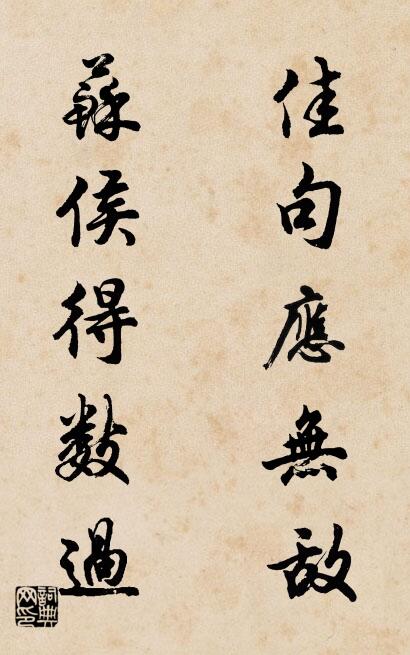 佳句應無敵
蘇侯得數過
詞典網印